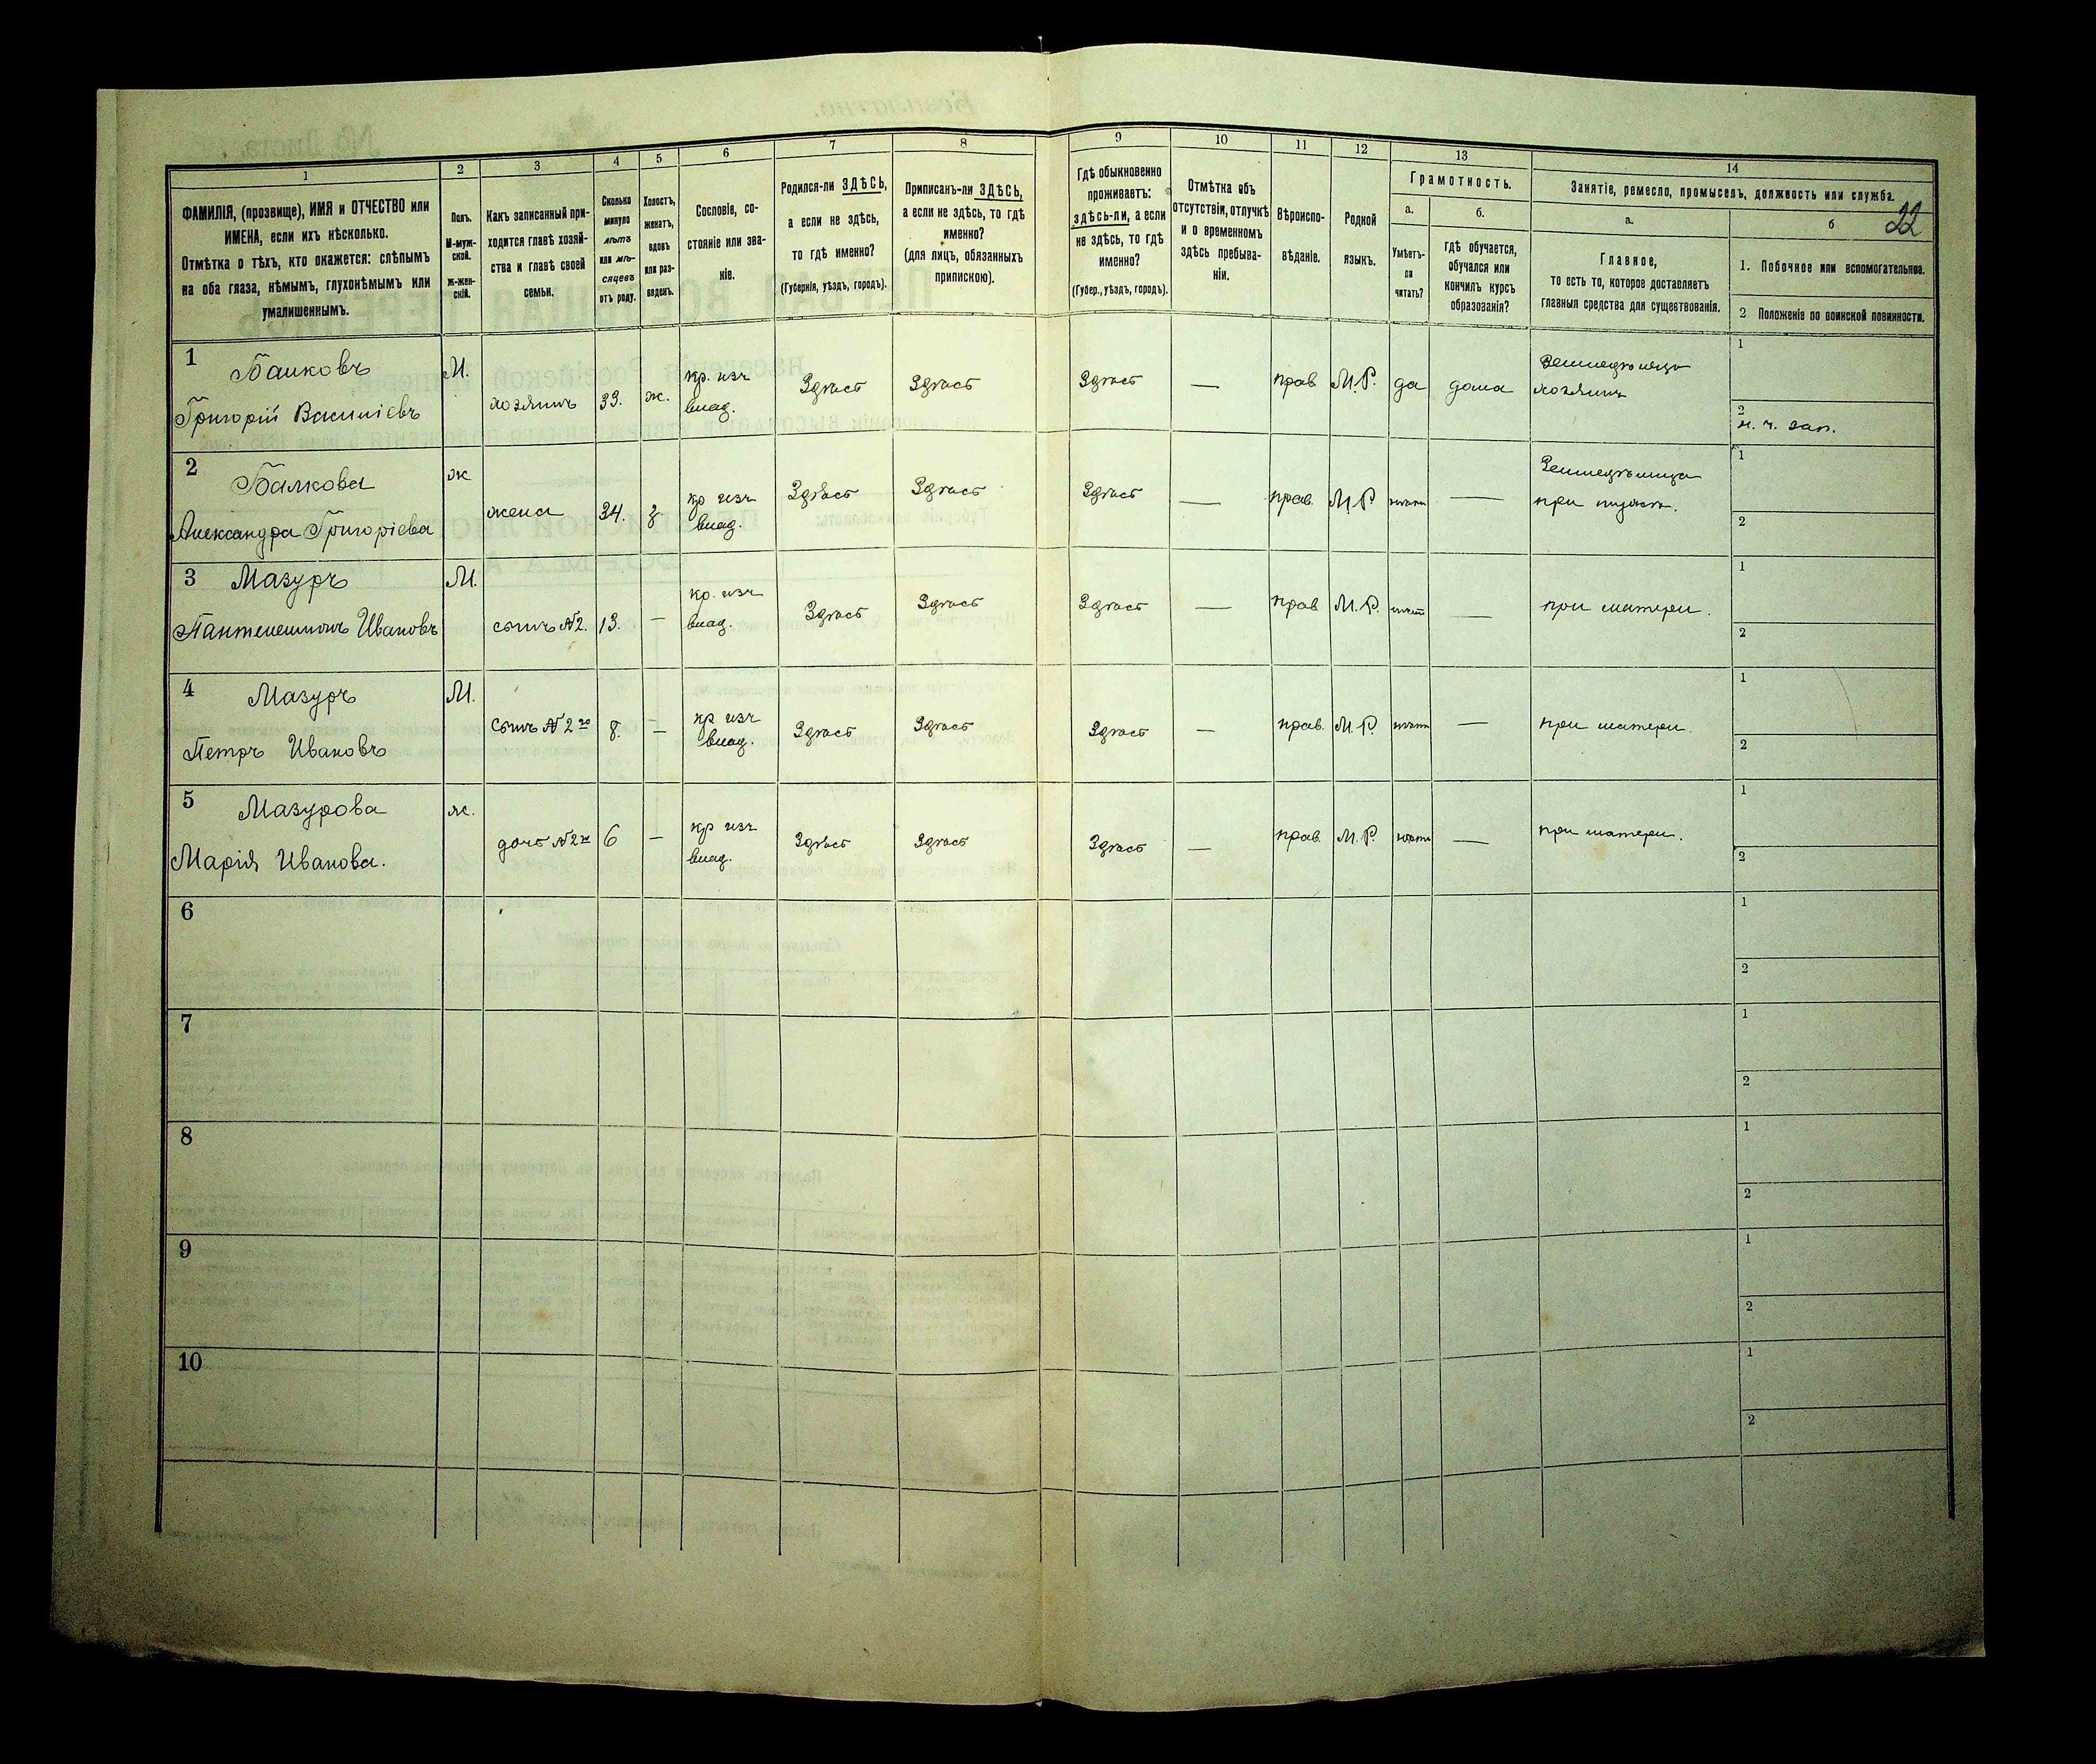 22
1
2
3
4
5
6
7
8
9
10
11
12
13
14
ФАМИЛІЯ, (прозвище), ИМЯ и ОТЧЕСТВО или
ИМЕНА, если ихъ нѣсколько.
Отмѣтка о тѣхъ, кто окажется: слѣпымъ
на оба глаза, нѣмымъ, глухонѣмымъ или
умалишеннымъ.
Полъ.
М-муж-
ской.
Ж-жен-
скій.
Какъ записанный при-
ходится главѣ хозяй-
ства и главѣ своей
семьи.
Сколько
минуло
лѣтъ
или мѣ-
сяцевъ
отъ роду.
Холостъ,
женатъ,
вдовъ
или раз-
веденъ.
Сословіе, со-
стояніе или зва-
ніе.
Родился-ли ЗДѢСЬ,
а если не здѣсь,
то гдѣ именно?
(Губернія, уѣздъ, городъ).
Приписанъ-ли ЗДѢСЬ,
а если не здѣсь, то гдѣ
именно?
(для лицъ, обязанныхъ
припискою).
Гдѣ обыкновенно
проживаетъ:
здѣсь-ли, а если
не здѣсь, то гдѣ
именно?
(Губер., уѣздъ, городъ).
Отмѣтка объ
отсутствіи, отлучкѣ
и о временномъ
здѣсь пребыва-
ніи.
Вѣроиспо-
вѣданіе.
Родной
языкъ.
Грамотность.
а.
Умѣетъ-
ли
читать?
б.
гдѣ обучается,
обучался или
кончилъ курсъ
образованія?
Занятіе, ремесло, промыселъ, должность или служба.
а.
Главное,
то есть то, которое доставляетъ
главныя средства для существованія.
б
1. Побочное или вспомогательное.
2 Положеніе по воинской повинности.
1 Балковъ
Григорій Василіевъ
М.
хозяинъ
33.
ж.
кр. изъ
влад.
Здѣсь
Здѣсь
Здѣсь
—
прав
М.Р.
да
дома
Земледѣлецъ
хозяинъ
1
2
н. ч. зап.
2 Балкова
Александра Григоріева
ж
жена
34.
з
кр изъ
влад.
Здѣсь
Здѣсь
Здѣсь
—
прав.
М.Р.
—
при мужѣ.
1
2
3 Мазуръ
Пантелешмонъ Ивановъ
М.
сынъ №2.
13.
—
кр. изъ
влад.
Здѣсь
Здѣсь
Здѣсь
—
прав
М.Р.
нѣтъ
—
при матери.
1
2
4 Мазуръ
Петръ Ивановъ
М.
сынъ №2го
8.
—
кр изъ
влад.
Здѣсь
Здѣсь
Здѣсь
—
прав.
М.Р.
нѣтъ
—
при матери.
1
2
5 Мазурова
Марія Иванова.
ж.
дочь №2й
6
—
кр изъ
влад.
Здѣсь
Здѣсь
Здѣсь
—
прав.
М.Р.
нѣтъ
—
при матери.
1
2
6
1
2
7
1
2
8
1
2
9
1
2
10
1
2